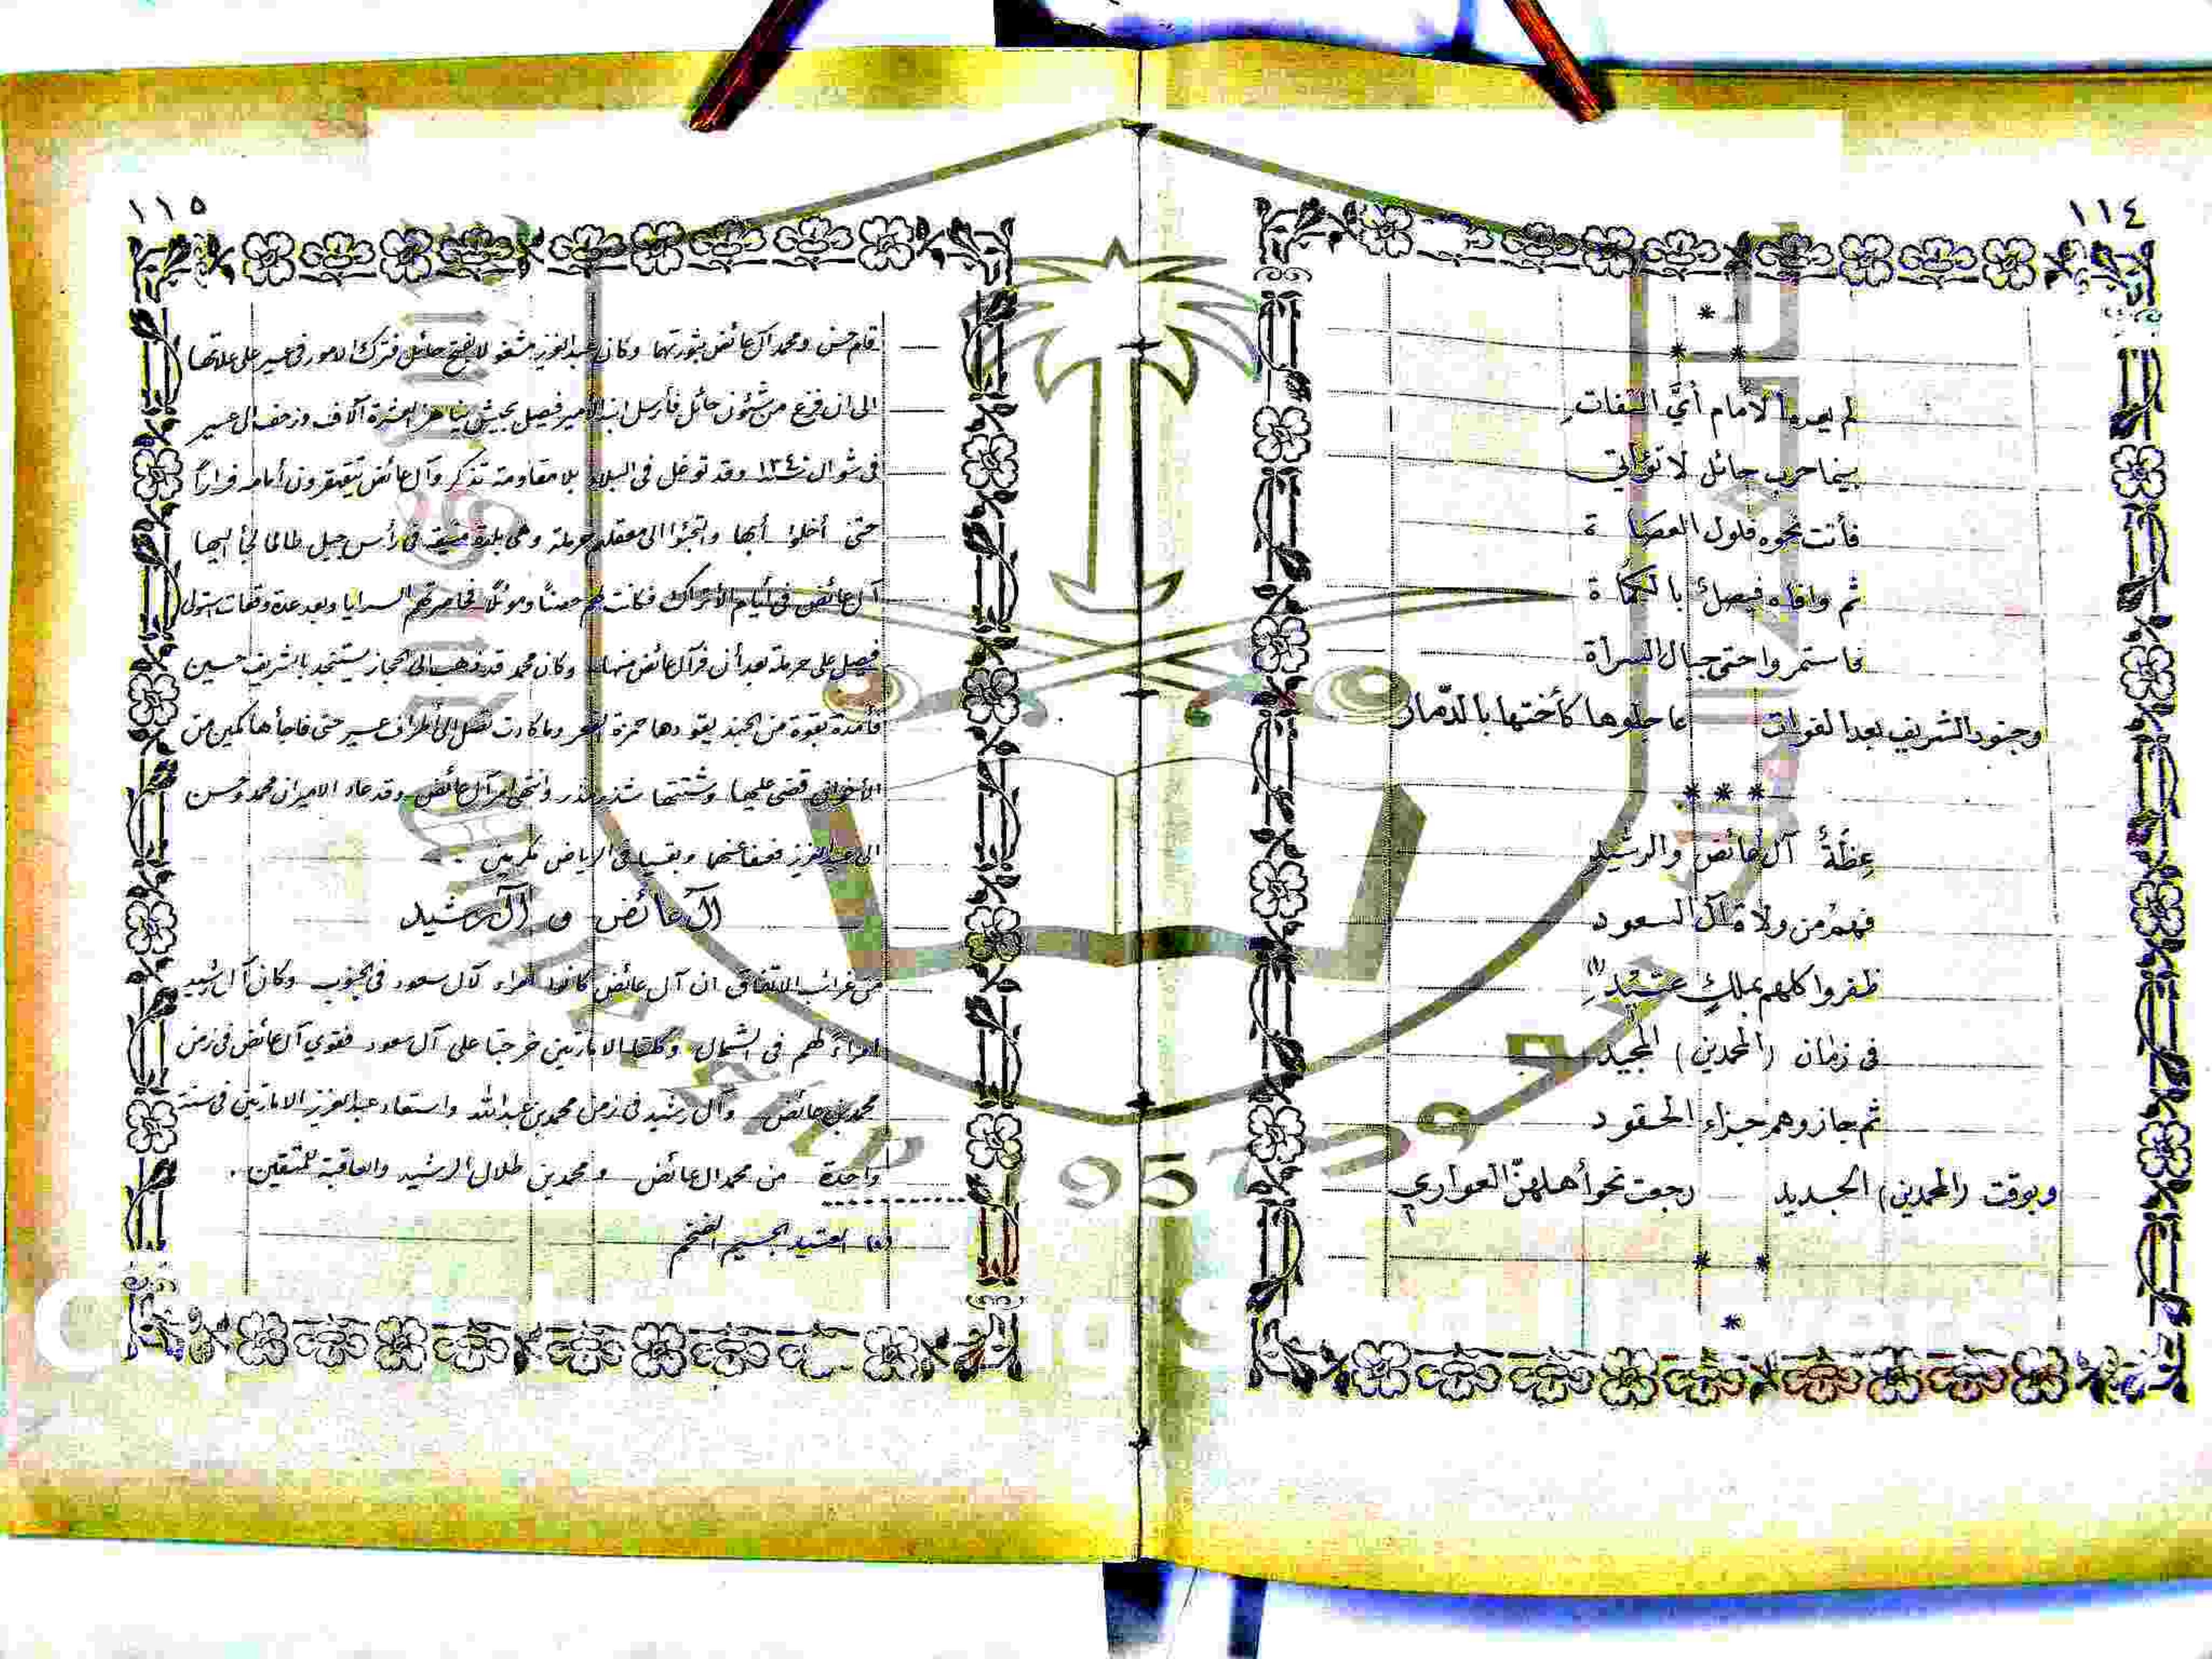 ١١٤
*
* *
لم يعرها الأمام أيَّ التفات
بينما حرب حائل لا تؤاتي
فأتت نحوه فلول العصاة
ثم وافاه فيصلٌ بالكماة
فاستمروا حتى جبال السراة
وجنود الشريف بعد الفوات عاجلوها كأختها بالدّمار
* * *
عِظَةٌ آل عائض والرشيد
فهمُ من ولاة آل السعود
ظفروا كلهم بملكٍ عتيد (١)
في زمان (المحمدين) المجيد
ثم جازوهم جزاء الحقود
وبوقت (المحمدين) الجديد رجعت نحو أهلهنّ العواري
* *
*
١١٥
قام حسن ومحمد آل عائض بثورتهما وكان عبد العزيز مشغولا بفتح حائل فترك الامور في عسير على علاتها
الى ان فرغ من شئون حائل فأرسل ابنه الأمير فيصل بجيش يناهز العشرة آلاف وزحف الى عسير
في شوال ١٣٤٠ وقد توغل في البلاد بلا مقاومة تذكر وآل عائض يتقهقرون أمامه فراراً
حتى أخلوا أبها والتجئوا الى معقلهم حرملة وهي بلدة منيفة في رأس جبل طالما لجأ اليها
آل عائض في أيام الأتراك فكانت لهم حصناً وموئلًا فحاصرتهم السرايا وبعد عدة وقعات استولى
فيصل على حرملة بعد أن فر آل عائض منها، وكان محمد قد ذهب الى الحجاز يستنجد بالشريف حسين
فأمده بقوة من الجند يقودها حمزة الفعر وما كادت تصل الى أطراف عسير حتى فاجأها كمين من
الأخوان قضى عليها وشتتها شذر مذر وانتهى أمر آل عائض وقد عاد الاميران محمد وحسن
الى عبد العزيز فعفا عنهما وبقيا في الرياض مكرمين .
آل عائض و آل رشيد
من غرائب الاتفاق ان آل عائض كانوا أمراء لآل سعود في الجنوب وكان آل رشيد
امراءً لهم في الشمال وكلتا الامارتين خرجتا على آل سعود فقوي آل عائض في زمن
محمد بن عائض وآل رشيد في زمن محمد بن عبد الله واستعاد عبد العزيز الامارتين في سنة
واحدة من محمد ال عائض ومحمد بن طلال الرشيد والعاقبة للمتقين .
(١) العتيد الجسيم الضخم